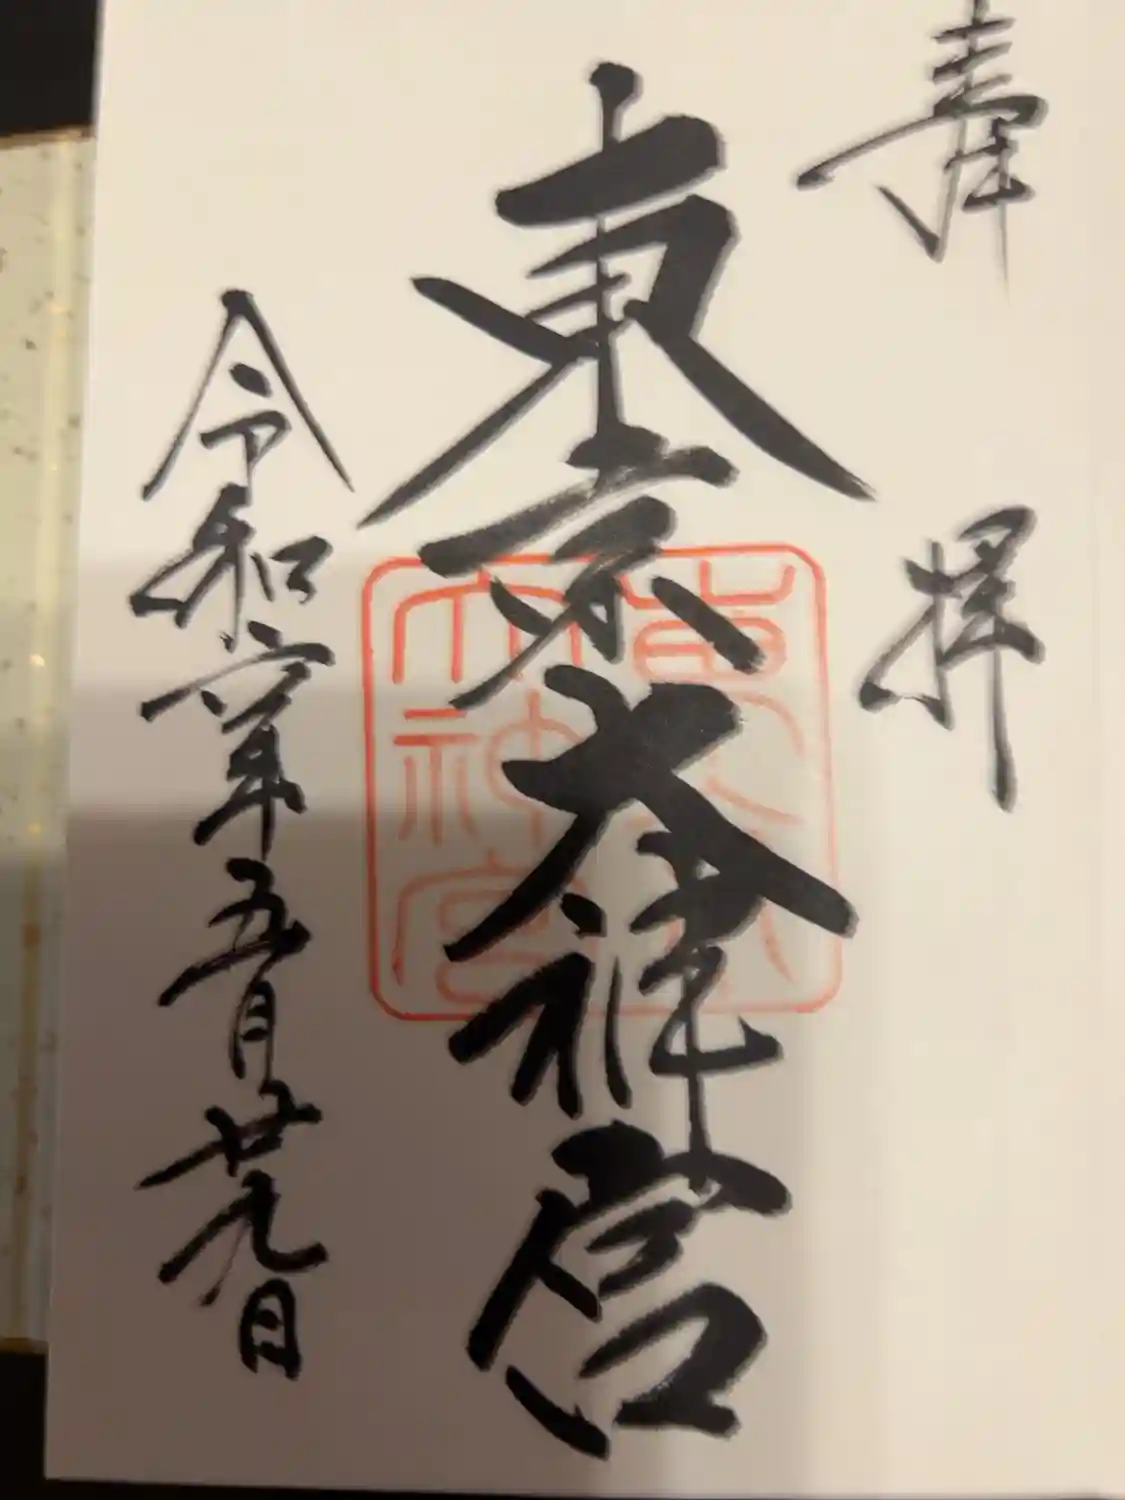 奉拝
東京大神宮
東京大神宮
令和六年五月廿九日